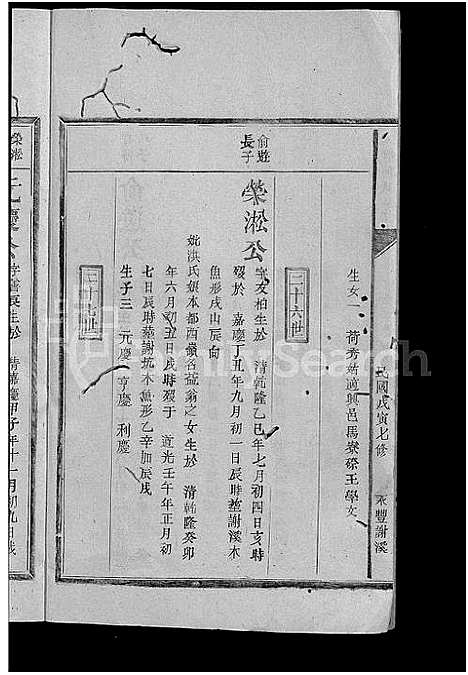 民國戊寅七修　永豐謝溪
生女一　荷秀姑適興邑馬寮磜王學文
三十六世
俞遊長子
榮淞公
字友柏生於　清乾隆乙巳年七月初四日亥時
歿於　嘉慶丁丑年九月初一日辰時塟謝溪木
魚形戌山辰向
妣洪氏娘本都西嶺名益翁之女生於　清乾隆癸卯
年六月初五日戌時歿于　道光壬午年正月初
七日辰時塟謝坑木魚形乙辛加辰戌
生子三　元慶　亨慶　利慶
三十七世
榮淞
元慶公
生於　清嘉慶甲子年十一月初九日戌